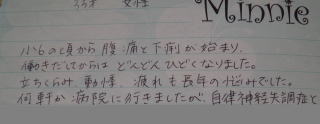 33才 女性
Minnie
小6の頃から腹痛と下痢が始まり、
働きだしてからは どんどんひどくなりました。
立ちくらみ、動悸、疲れも長年の悩みでした。
何軒か病院に行きましたが、自律神経失調症と